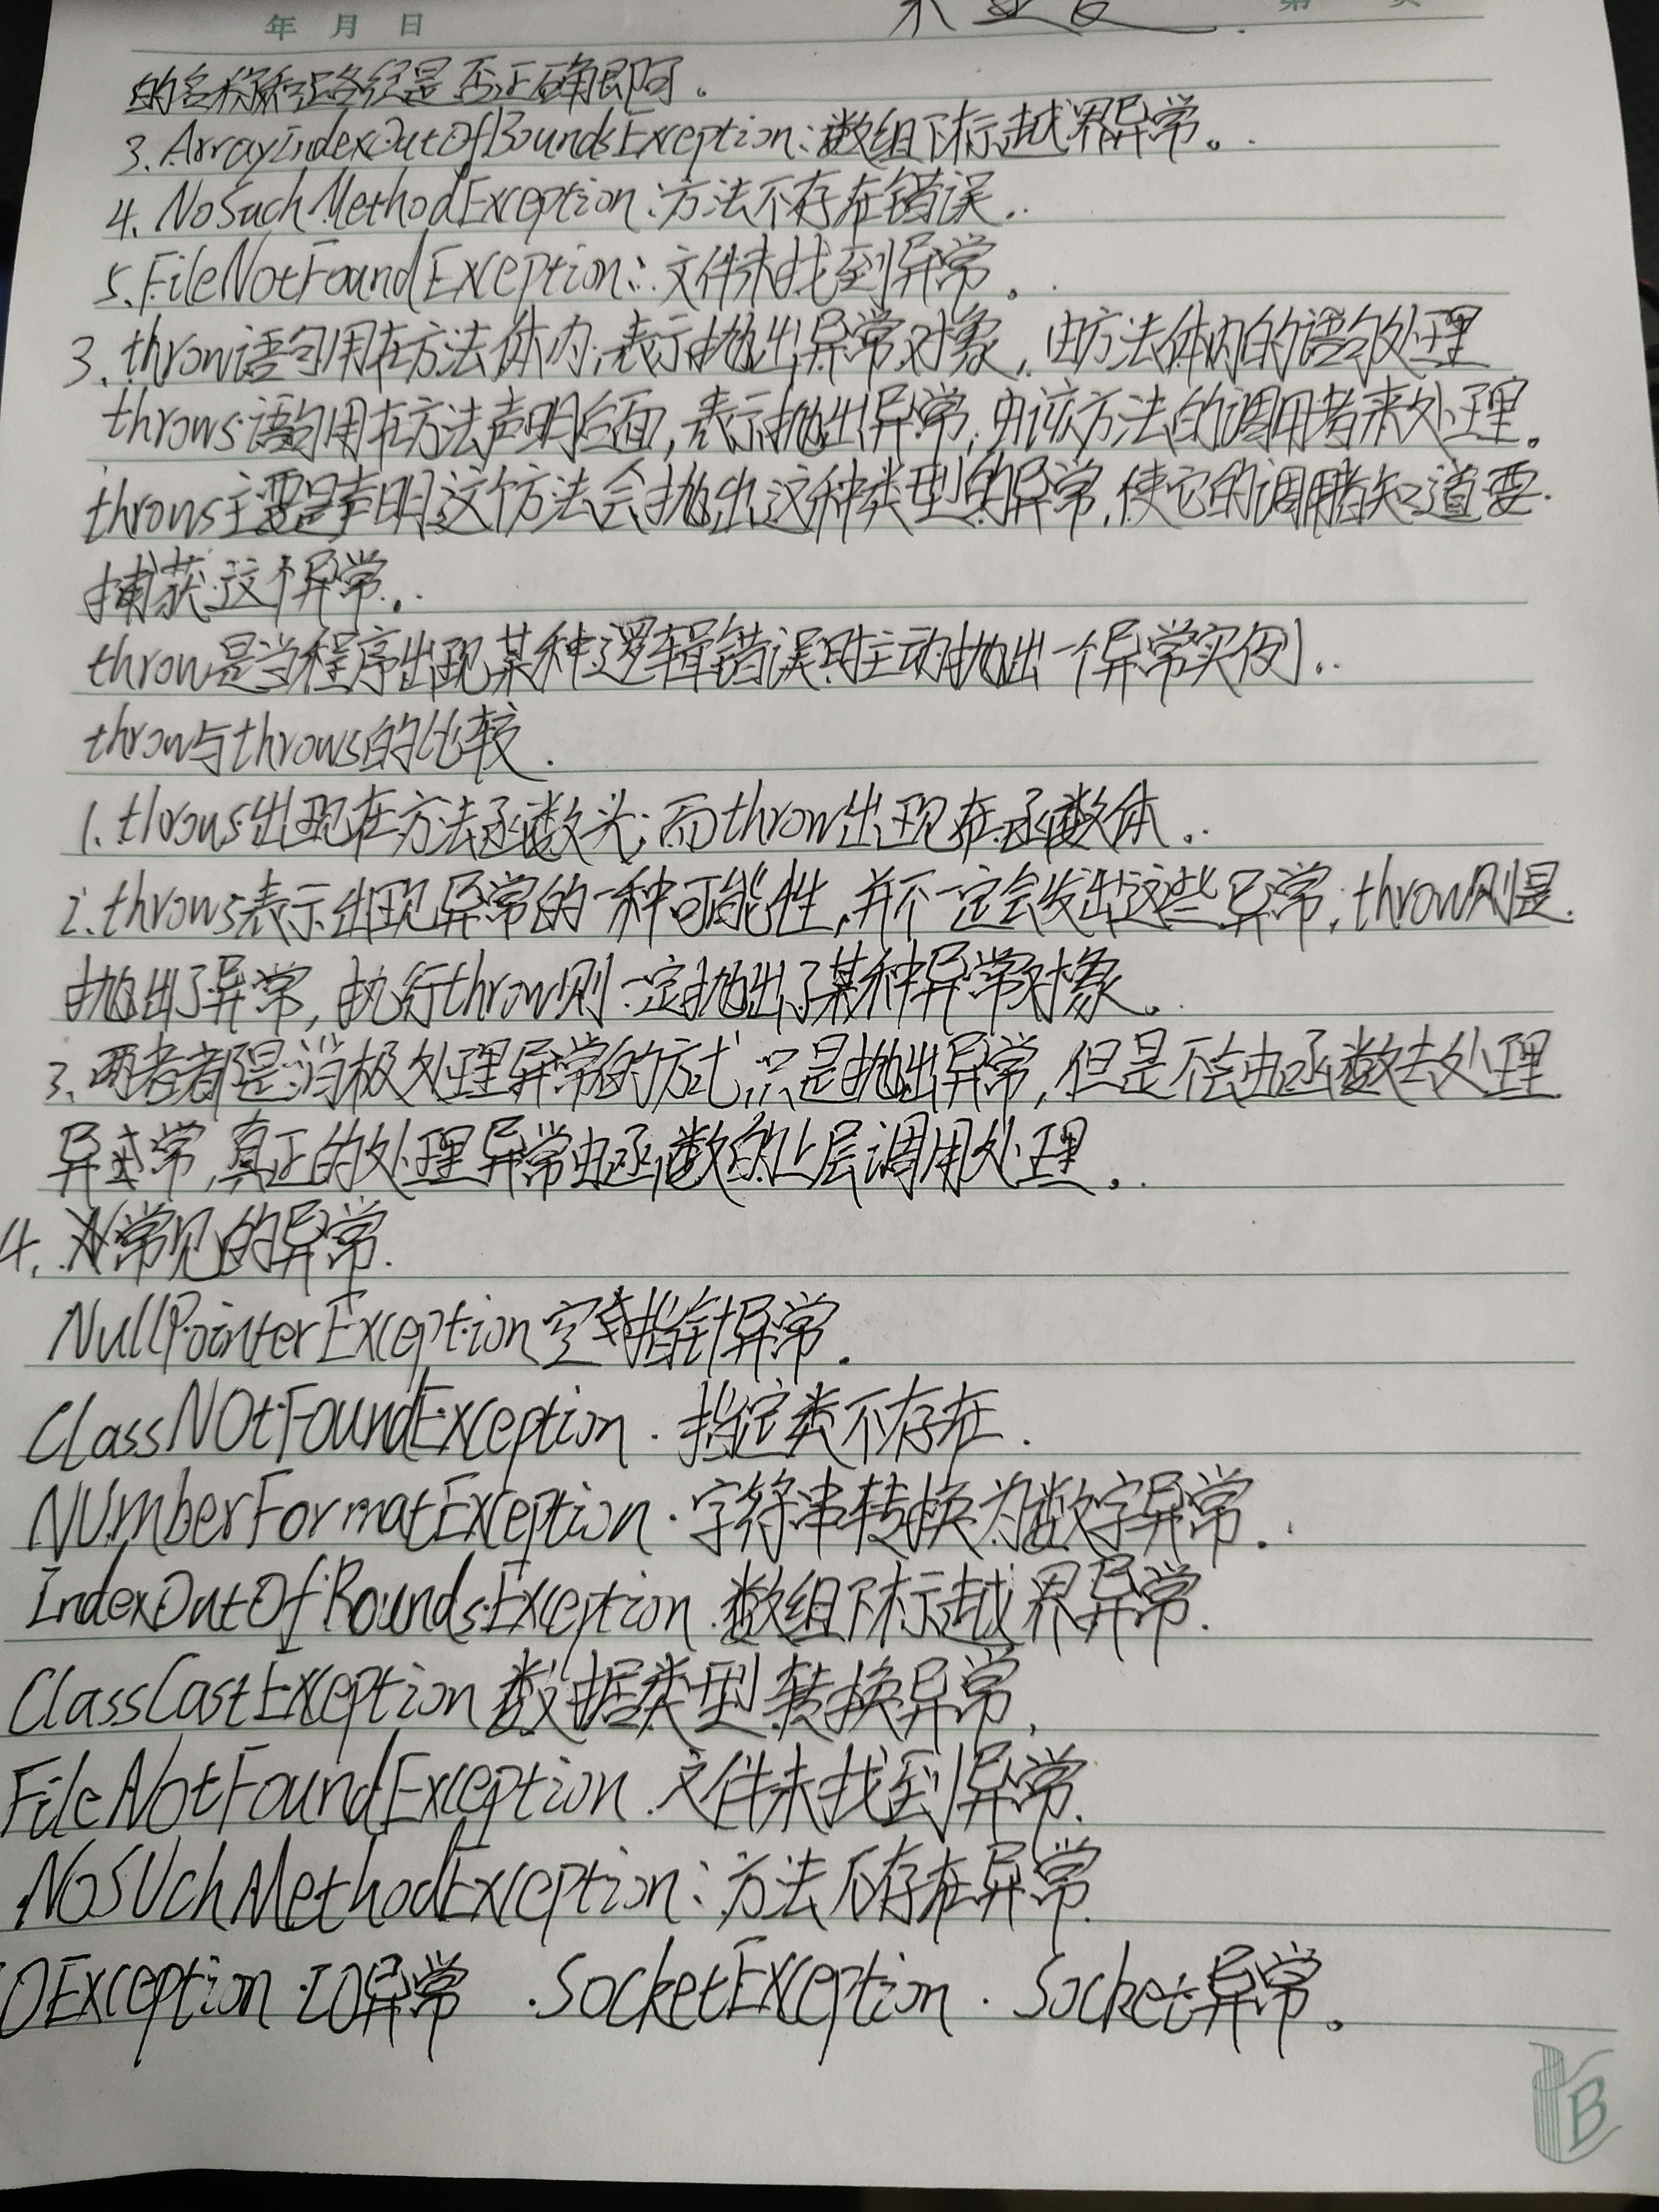 年 月 日
的名称和路径是否正确即可。
3. ArrayIndexOutOfBoundsException:数组下标越界异常。
4. NoSuchMethodException:方法不存在错误.
5. FileNotFoundException:文件未找到异常。
3. throw语句用在方法体内,表示抛出异常对象,由方法体内的语句处理
throws语句用在方法声明后面,表示抛出异常,由该方法的调用者来处理。
throws主要是声明这个方法会抛出这种类型的异常,使它的调用者知道要
捕获这个异常.
throw是当程序出现某种逻辑错误时主动抛出一个异常实例.
throw与throws的比较.
1. throws出现在方法函数头;而throw出现在函数体.
2. throws表示出现异常的一种可能性,并不一定会发出这些异常;throw则是
抛出了异常,执行throw则一定抛出了某种异常对象。
3. 两者都是消极处理异常的方式,只是抛出异常,但是不会由函数去处理
异常,真正的处理异常由函数的上层调用处理。
4. 常见的异常.
NullPointerException 空指针异常.
ClassNOtFoundException . 指定类不存在.
NUmberFormatException . 字符串转换为数字异常.
IndexOutOfBoundsException.数组下标越界异常.
ClassCastException 数据类型转换异常,
FileNotFoundException.文件未找到异常.
NoSUchMethodException:方法不存在异常.
IOException . IO异常 . SocketException . Socket异常。
B